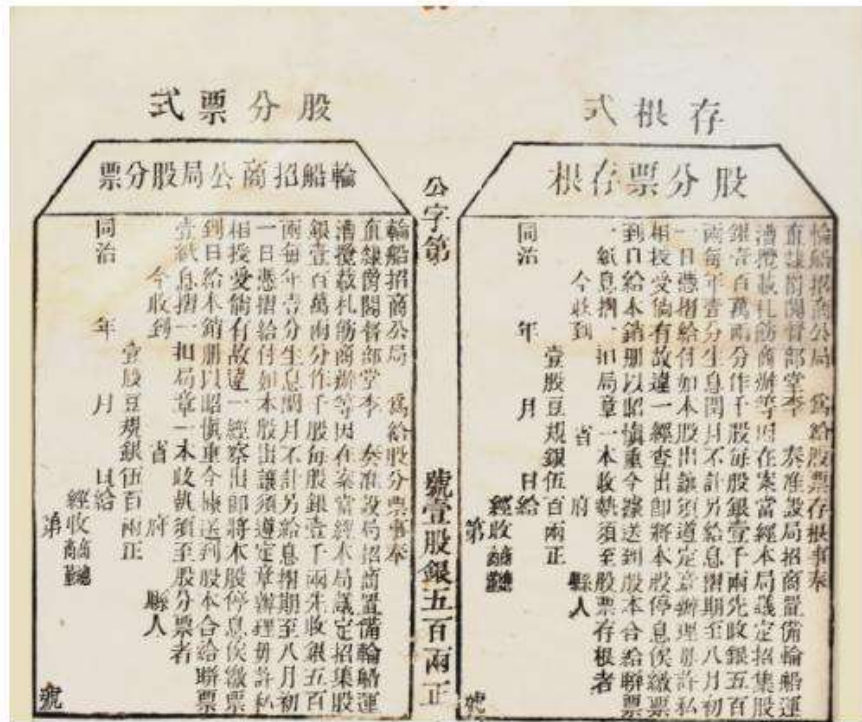 存根式
股分票存根
輪船招商公局 為給股票存根事奉
直隸爵閣督部堂李 奏准設局招商置備輪船運
漕攬載札飭商辦等因在案當經本局議定招集股
銀壹百萬兩分作千股每股銀壹千兩先收銀五百
兩每年壹分生息閏月不計另給息摺期至八月初
一日憑摺給付如本股出讓須遵定章辦理毋許私
相授受倘有故違一經查出即將本股停息俟繳票
到日給本銷冊以昭慎重今據送到股本合給聯票
一紙息摺一扣局章一本收執須至股票存根者
今收到 省 府 縣人
壹股豆規銀伍百兩正
同治 年 月 日給
經收商總董
第 號
公字第 號壹股銀五百兩正
股分票式
輪船招商公局股分票
輪船招商公局 為給股分票事奉
直隸爵閣督部堂李 奏准設局招商置備輪船運
漕攬載札飭商辦等因在案當經本局議定招集股
銀壹百萬兩分作千股每股銀壹千兩先收銀五百
兩每年壹分生息閏月不計另給息摺期至八月初
一日憑摺給付如本股出讓須遵定章辦理毋許私
相授受倘有故違一經察出即將本股停息俟繳票
到日給本銷冊以昭慎重今據送到股本合給聯票
壹紙息摺一扣局章一本收執須至股分票者
今收到 省 府 縣人
壹股豆規銀伍百兩正
同治 年 月 日給
經收商總董
第 號